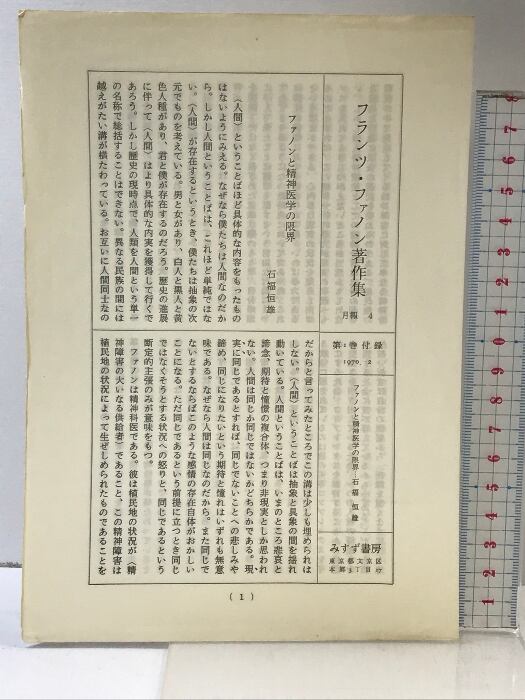 フランツ・ファノン著作集
月報 4
第1巻付録
1970. 2
ファノンと精神医学の限界…石福恒雄
みすず書房
東京都文京区
本郷3丁目
ファノンと精神医学の限界
石福恒雄
〈人間〉ということばほど具体的な内容をもったもの
はないようにみえる。なぜなら僕たちは人間なのだか
ら。しかし人間ということばは、これほど単純ではな
い。〈人間〉が存在するというとき、僕たちは抽象の次
元でものを考えている。男と女があり、白人と黒人と黄
色人種があり、君と僕が存在するのだろう。歴史の進展
に伴って〈人間〉はより具体的な内実を獲得して行くで
あろう。しかし歴史の現時点で、人類を人間という単一
の名称で総括することはできない。異なる民族の間には
越えがたい溝が横たわっている。お互いに人間同士なの
だからと言ってみたところでこの溝は少しも埋められは
しない。〈人間〉ということばは抽象と具象の間を揺れ
動いている。人間ということばは、いまのところ悲哀と
諦念、期待と憧憬の複合体、つまり非現実としか思われ
ない。人間は同じか同じではないかどちらかである。現
実に同じであるとすれば、同じでないことへの悲しみや
諦め、同じになりたいという期待と憧れはいずれも無意
味である。なぜなら人間は同じなのだから。また同じで
ないとするならばこのような感情の存在自体がおかしい
ことになる。ただ同じであるという前提に立つとき同じ
ではなくそうとする状況への怒りと、同じであるという
断定的主張のみが意味をもつ。
ファノンは精神科医である。彼は植民地の状況が〈精
神障害の大いなる供給者〉であること、この精神障害は
植民地の状況によって生ぜしめられたものであることを
( 1 )
1 2 3 4 5 6 7 8 9 0 1 2 3 4 5 6 7 8